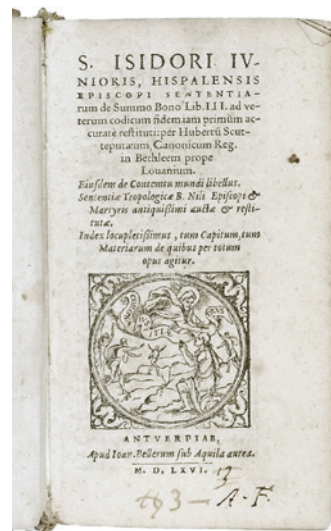 S. ISIDORI IV-
NIORIS, HISPALENSIS
EPISCOPI SENTENTIA-
rum de Summo Bono Lib. III. ad ve-
terum codicum fidem iam primùm ac-
curatè restituti: per Hubertū Scut-
teputæum, Canonicum Reg.
in Bethleem prope
Louanium.
Eiusdem de Contemtu mundi libellus.
Sententiæ Tropologicæ B. Nili Episcopi &
Martyris antiquissimi auctæ & resti-
tutæ.
Index locupletissimus, tum Capitum, tum
Materiarum de quibus per totum
opus agitur.
ANTVERPIAE,
Apud Ioan. Bellerum sub Aquila aurea.
M. D. LXVI.
A. F.